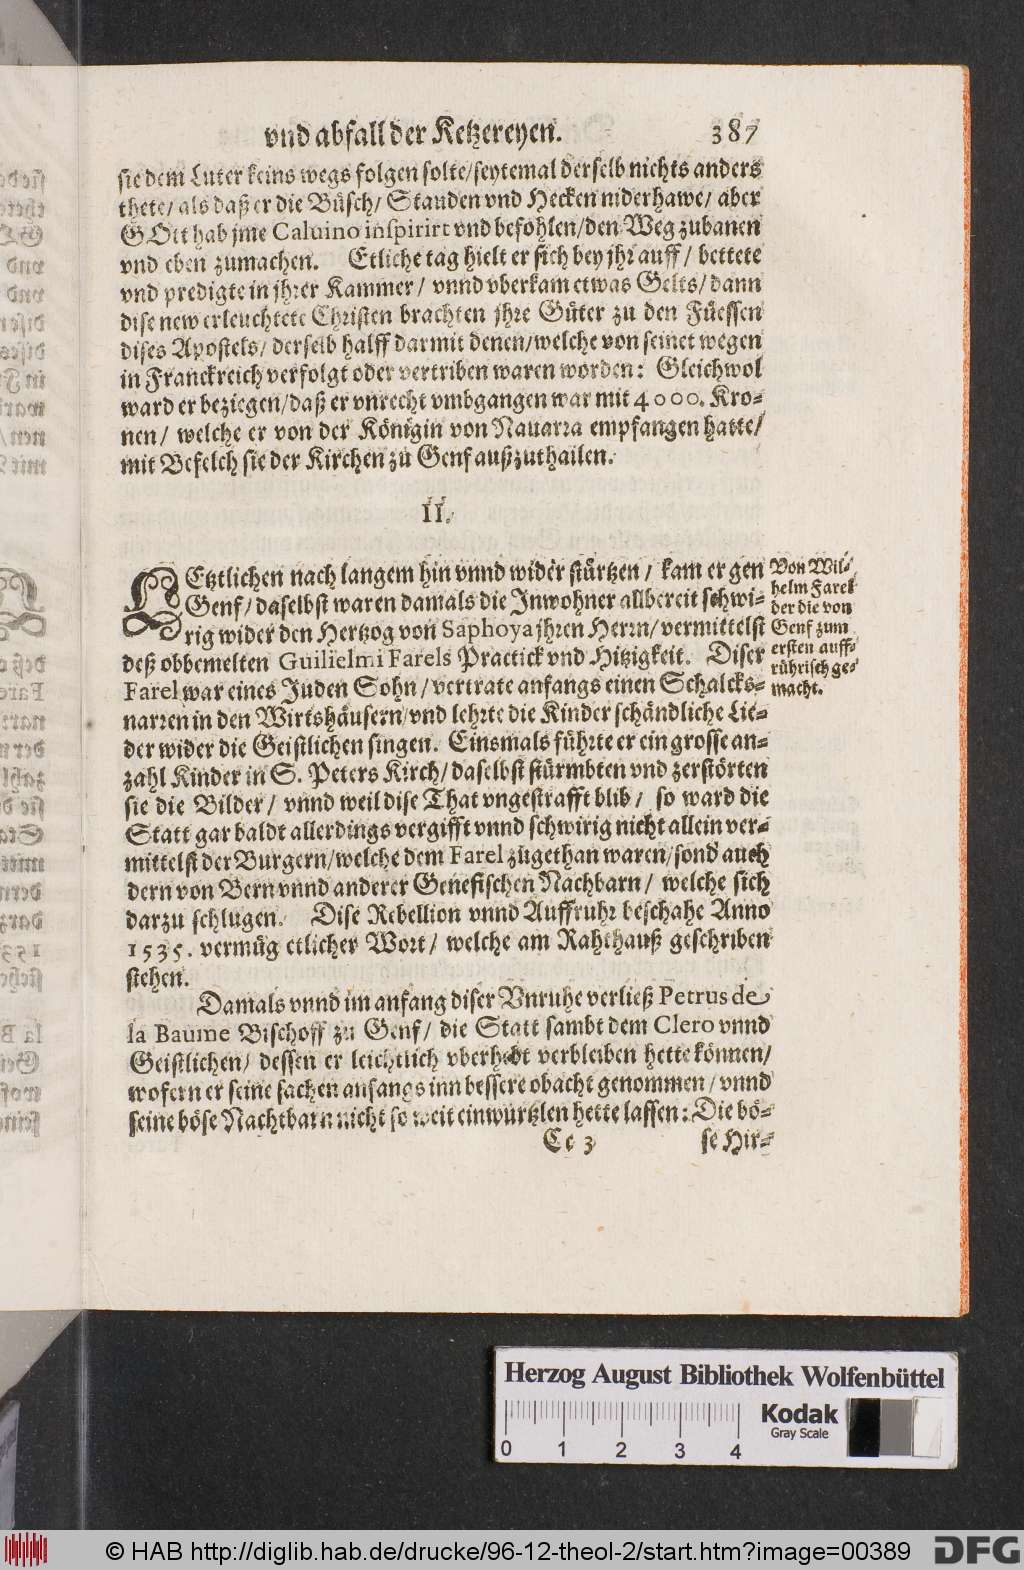 vnd abfall der Ketzereyen. 387
sie dem Luter keins wegs folgen solte/seytemal derselb nichts anders
thete/ als daß er die Büsch/ Stauden vnd Hecken niderhawe/ aber
GOtt hab jme Caluino inspirirt vnd befohlen/den Weg zubanen
vnd eben zumachen. Etliche tag hielt er sich bey jhr auff/ bettete
vnd predigte in jhrer Kammer/ vnnd vberkam etwas Gelts/ dann
dise new erleuchtete Christen brachten jhre Güter zu den Füessen
dises Apostels/ derselb halff darmit denen/welche von seinet wegen
in Franckreich verfolgt oder vertriben waren worden: Gleichwol
ward er beziegen/daß er vnrecht vmbgangen war mit 4000. Kro-
nen/ welche er von der Königin von Nauarra empfangen hatte/
mit Befelch sie der Kirchen zu Genf außzuthailen.
II.
LEtztlichen nach langem hin vnnd wider stürtzen/ kam er gen
Genf/ daselbst waren damals die Inwohner allbereit schwi-
rig wider den Hertzog von Saphoya jhren Herrn/ vermittelst
deß obbemelten Guilielmi Farels Practick vnd Hitzigkeit. Diser
Farel war eines Juden Sohn/ vertrate anfangs einen Schalcks-
narren in den Wirtshäusern/vnd lehrte die Kinder schändliche Lie-
der wider die Geistlichen singen. Einsmals führte er ein grosse an-
zahl Kinder in S. Peters Kirch/ daselbst stürmbten vnd zerstörten
sie die Bilder/ vnnd weil dise That vngestrafft blib/ so ward die
Statt gar baldt allerdings vergifft vnnd schwirig nicht allein ver-
mittelst der Burgern/welche dem Farel zugethan waren/sond auch
dern von Bern vnnd anderer Genefischen Nachbarn/ welche sich
darzu schlugen. Dise Rebellion vnnd Auffruhr beschahe Anno
1535. vermüg etlicher Wort/ welche am Rahthauß geschriben
stehen.
Von Wil-
helm Farel
der die von
Genf zum
ersten auff-
rührisch ge-
macht.
Damals vnnd im anfang diser Vnruhe verließ Petrus de
la Baume Bischoff zu Genf/ die Statt sambt dem Clero vnnd
Geistlichen/ dessen er leichtlich vberhebt verbleiben hette können/
wofern er seine sachen anfangs inn bessere obacht genommen/ vnnd
seine böse Nachtbarn nicht so weit einwurtzlen hette lassen: Die bö-
Cc 3 se Hir-
Herzog August Bibliothek Wolfenbüttel
Kodak
Gray Scale
0 1 2 3 4
© HAB http://diglib.hab.de/drucke/96-12-theol-2/start.htm?image=00389
DFG